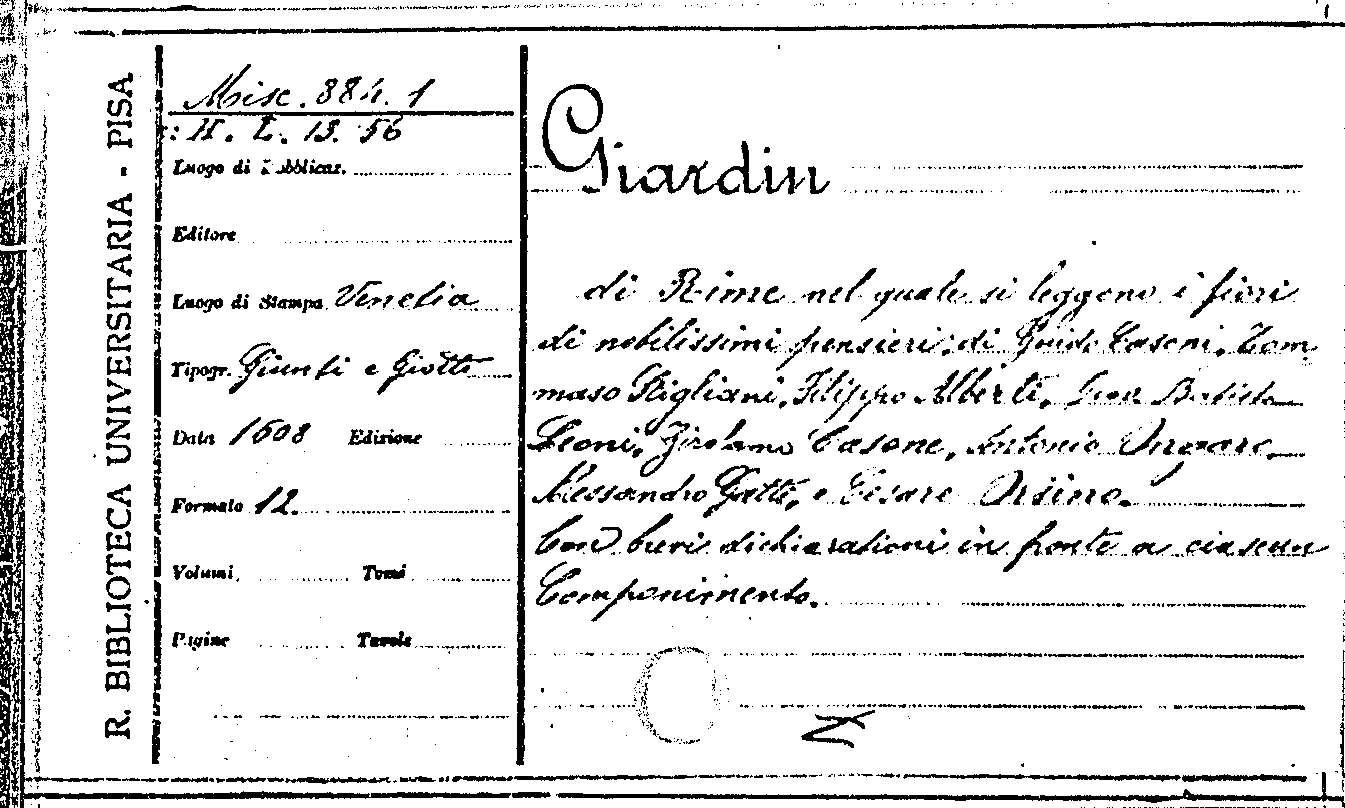 R. BIBLIOTECA UNIVERSITARIA - PISA
Misc. 884. 1
: H. L. 13. 56
Luogo di Pubblicaz.
Editore
Luogo di Stampa Venetia
Tipogr. Giunti e Giotti
Data 1608 Edizione
Formato 12.
Volumi Tomi
Pagine Tavole
Giardin
di Rime nel quale si leggono i fiori
di nobilissimi pensieri; di Guido Casoni, Tom-
maso Stigliani, Filippo Alberti, Giov. Batista
Leoni, Girolamo Casone, Antonio Ongaro,
Alessandro Gatti, e Cesare Orsino.
Con brevi dichiarationi in fronte a ciascun
Componimento.